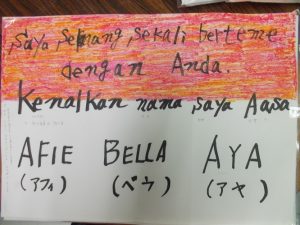 saya senang sekali berteme
dengan Anda.
Kenalkan nama saya Aasa
AFIE BELLA AYA
(アフィ) (ベラ) (アヤ)